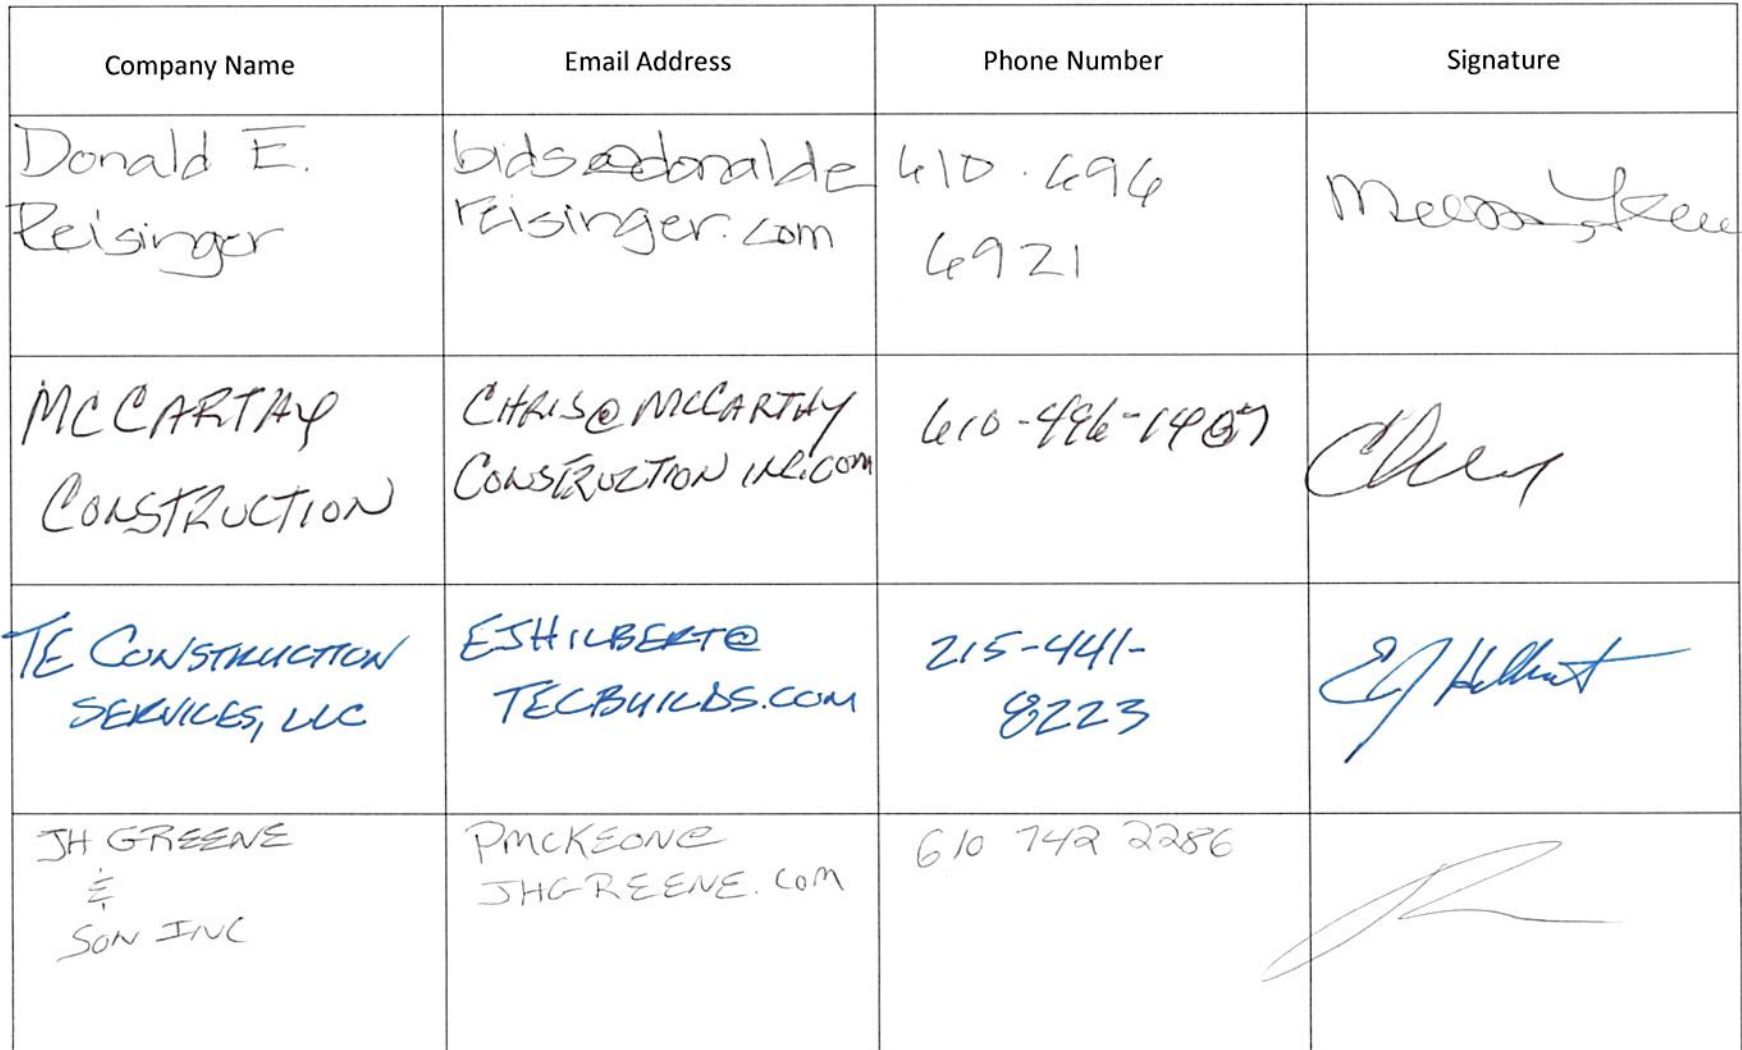 Company Name
Email Address
Phone Number
Signature
Donald E.
Reisinger
bids@donalde
reisinger.com
610.696
6921
McCARTHY
CONSTRUCTION
CHRIS@MCCARTHY
CONSTRUCTION INC.COM
TE CONSTRUCTION
SERVICES, LLC
EJHILBERT@
TECBUILDS.COM
215-441-
8223
EJ Hilbert
JH GREENE
&
SON INC
PMCKEON@
JHGREENE.COM
610 742 2286